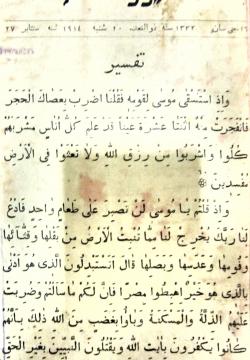 ١٣٣٢ سنه ذوالقعده ٢٠ شنبه ١٩١٤ سنه سنتابر ٢٧
تفسير
واذ استسقى موسى لقومه فقلنا اضرب بعصاك الحجر
فانفجرت منه اثنتا عشرة عينا قد علم كل اُناس مشربهم
كلوا واشربوا من رزق الله ولا تعثوا فى الأرض
مفسدين
واذ قلتم يا موسى لن نصبر على طعام واحد فادع
لنا ربك يخرج لنا مما تنبت الأرض من بقلها وقثائها
وفومها وعدسها وبصلها قال اتستبدلون الذى هو أدنى
بالذى هو خير اهبطوا مصرا فان لكم ما سألتم وضربت
عليهم الذلة والمسكنة وباؤا بغضب من الله ذلك بأنهم
كانوا يكفرون بآيت الله ويقتلون النبيين بغير الحق